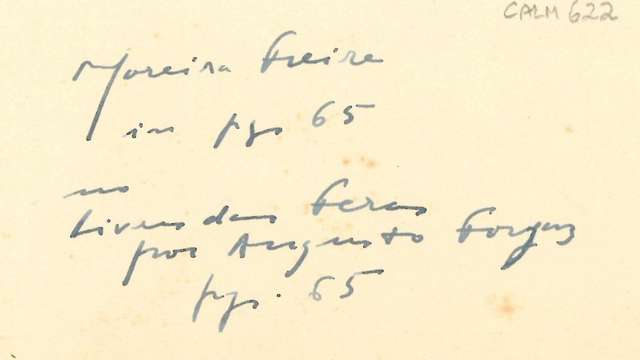 CALM 622
Moreira Freire
in pgs 65
no
Livro das Feras
por Augusto Forjaz
pgs. 65